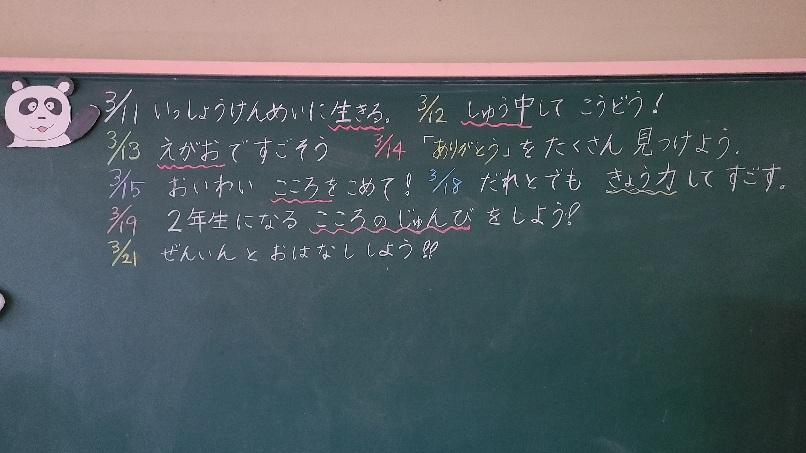 3/11 いっしょうけんめいに生きる。 3/12 しゅう中して こうどう!
3/13 えがおですごそう 3/14 「ありがとう」をたくさん 見つけよう.
3/15 おいわい こころをこめて! 3/18 だれとでも きょう力して すごす。
3/19 2年生になる こころのじゅんび をしよう!
3/21 ぜんいんと おはなし しよう!!